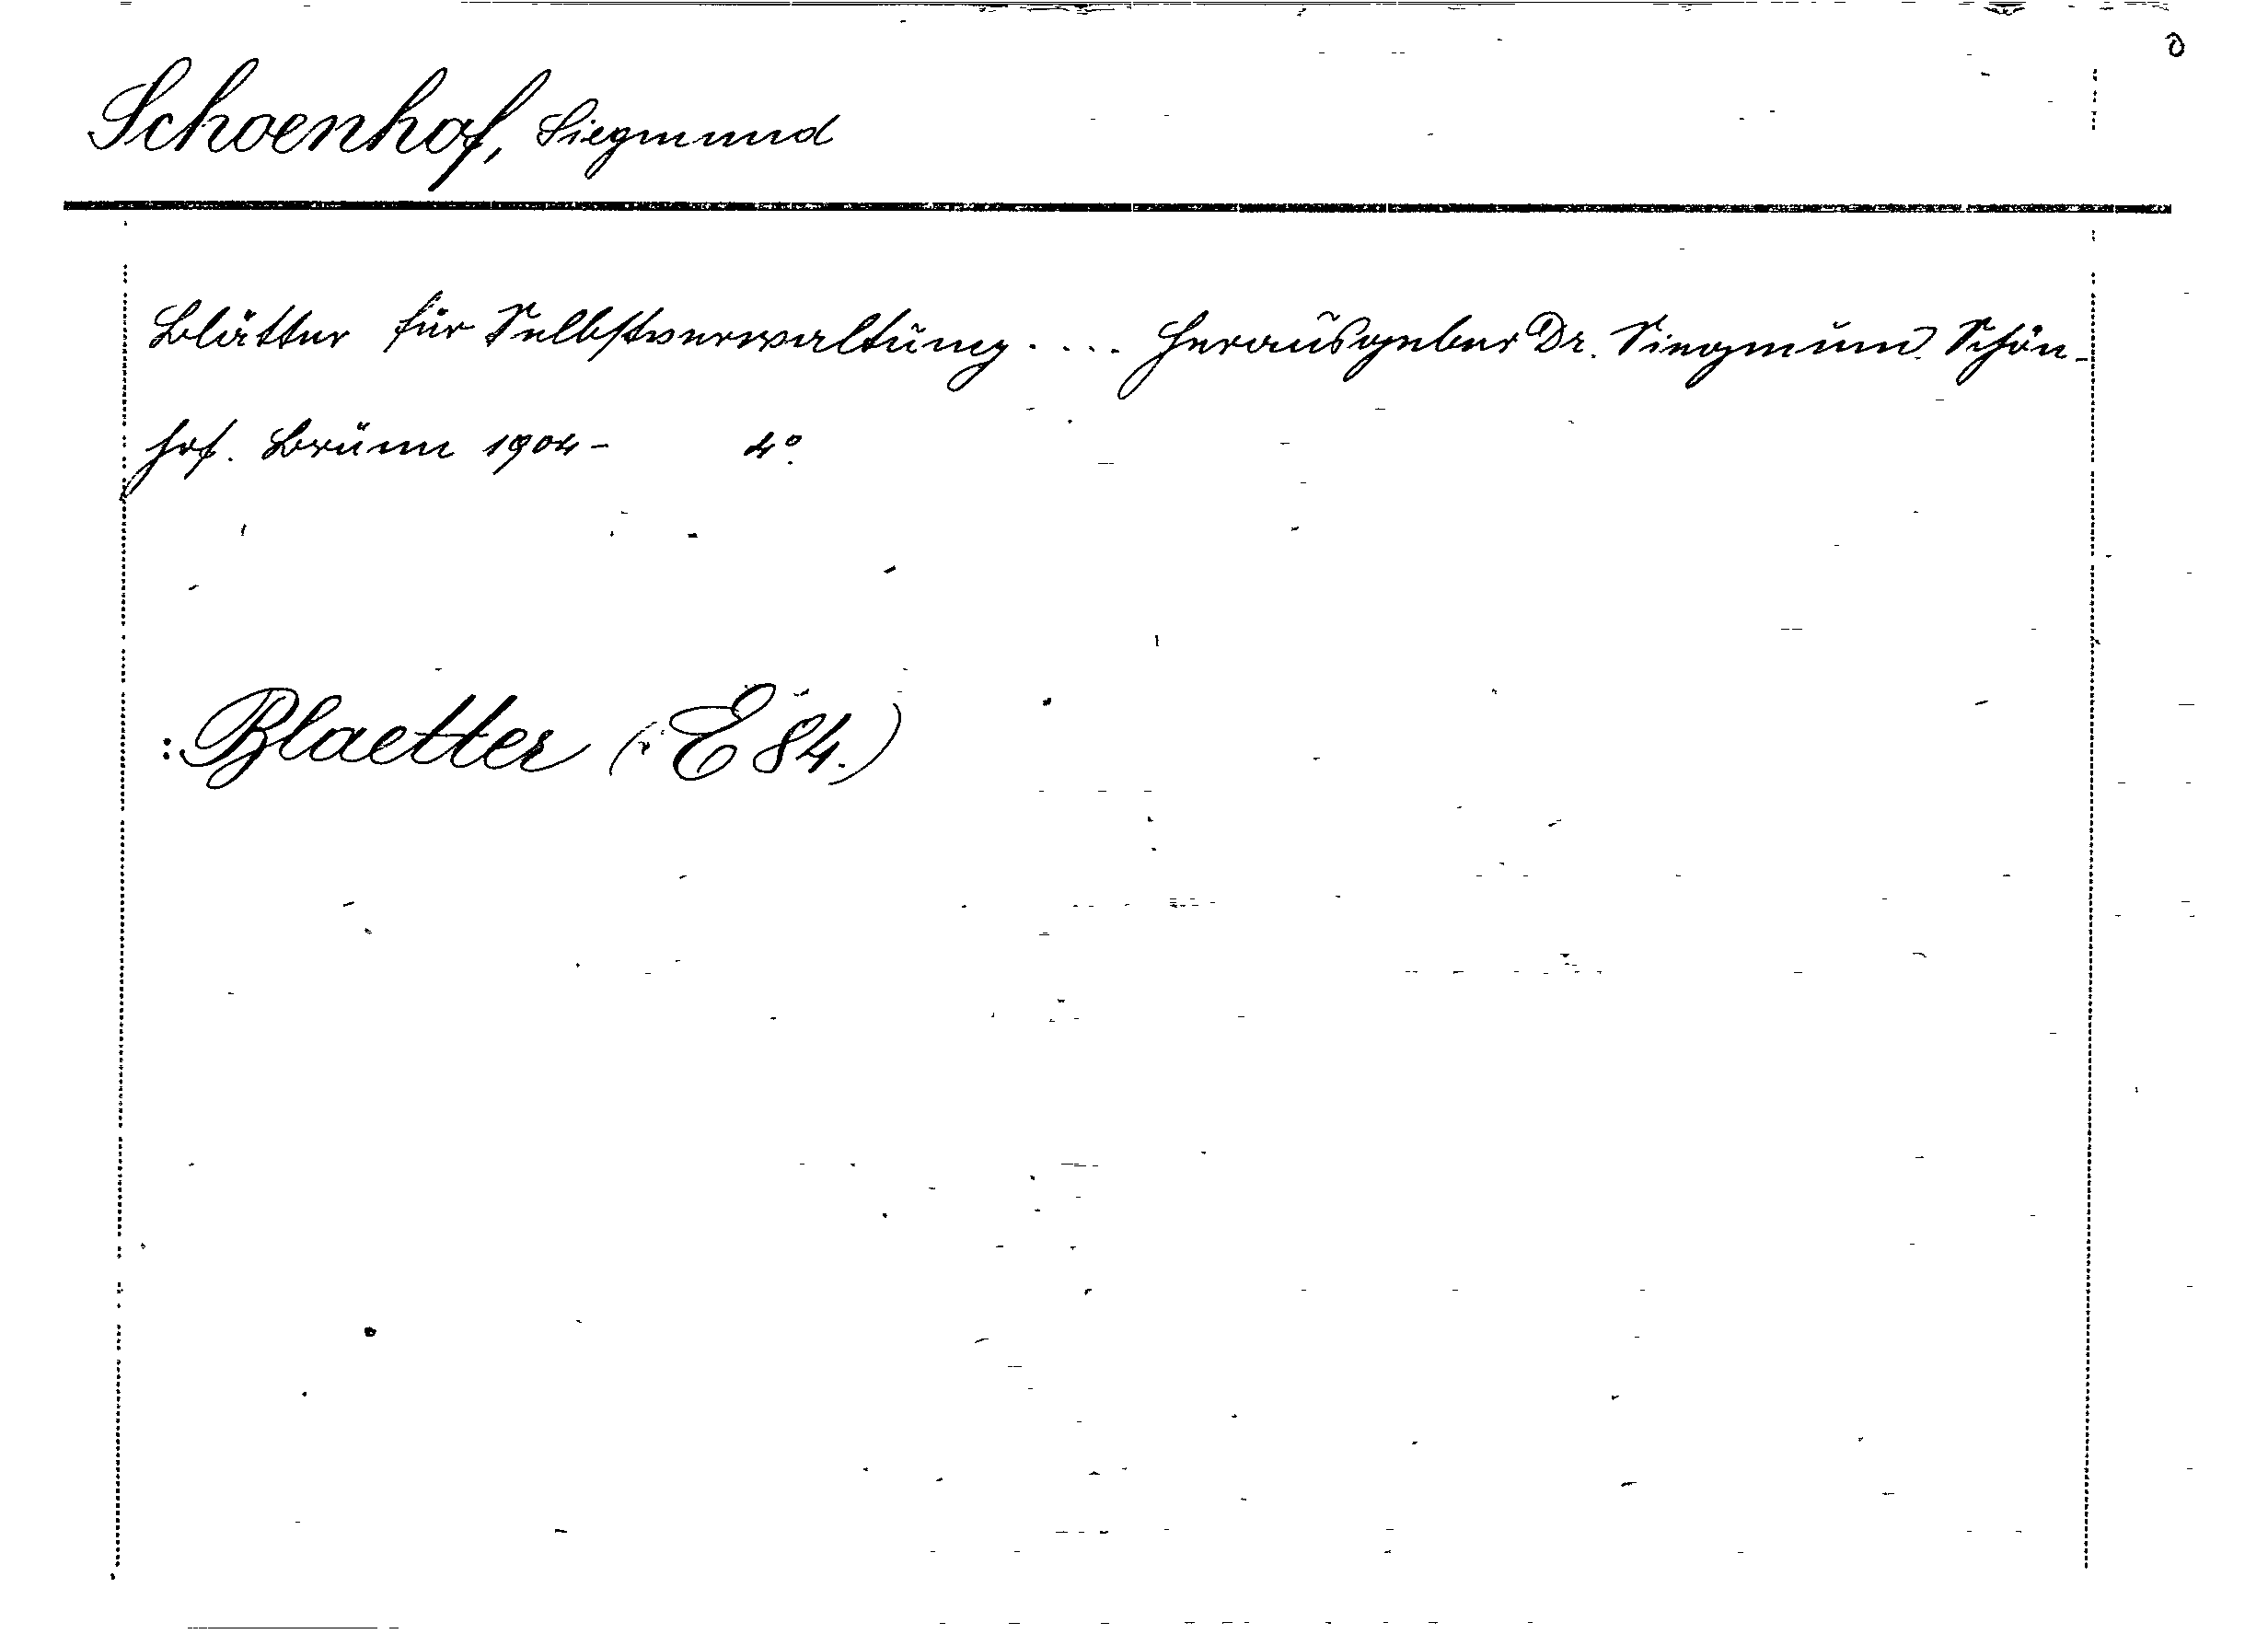 Schoenhof, Siegmund
Blätter für Selbstverwaltung.... Herausgeber Dr. Siegmund Schön-
hof. Brünn 1904- 4º
: Blaetter (E 84.)